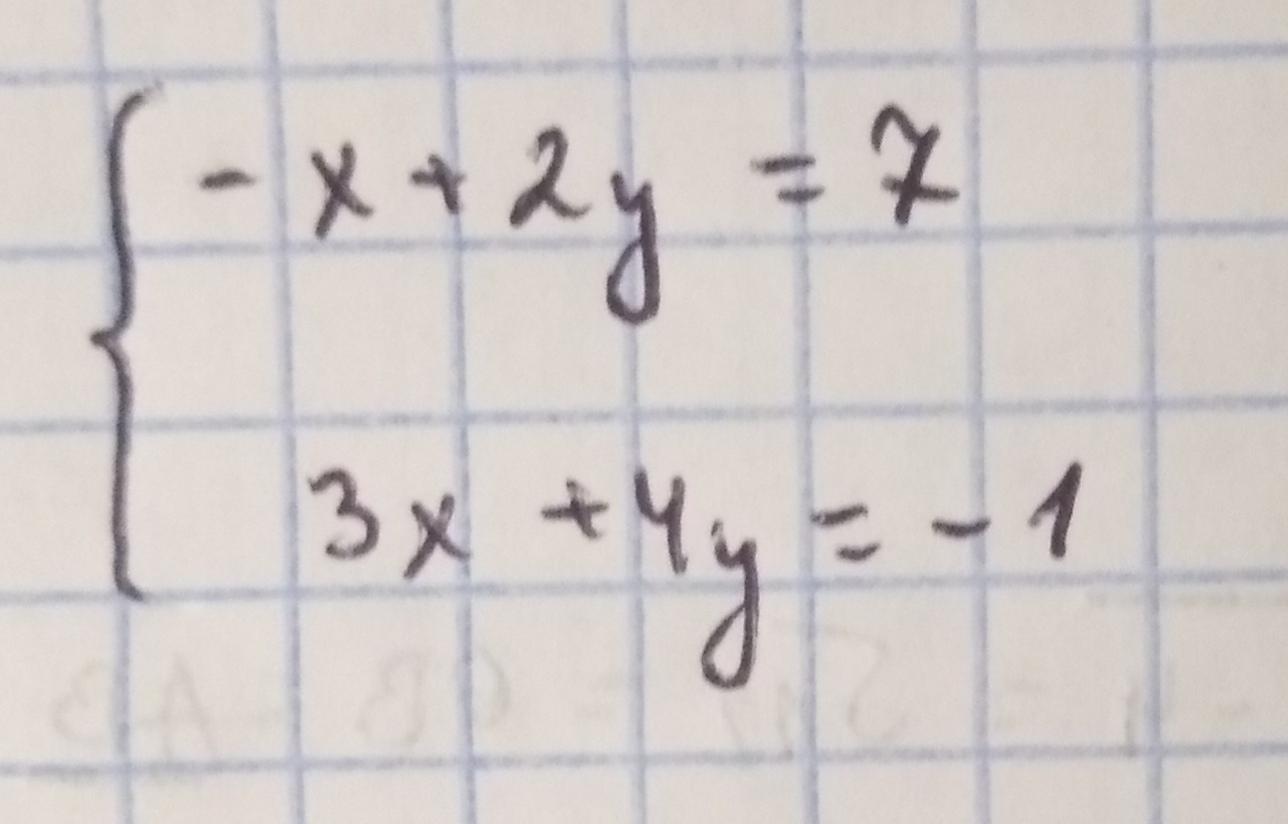 - x + 2y = 7
3x + 4y = - 1